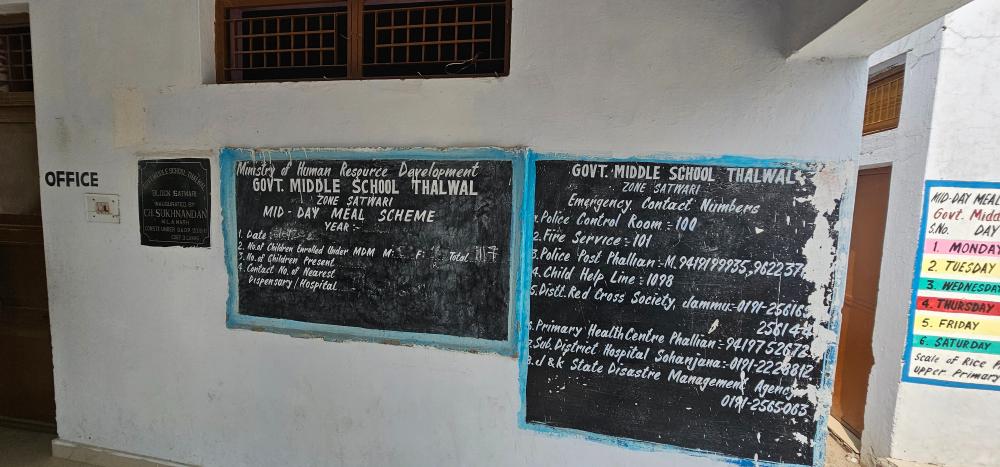 OFFICE
MIDDLE SCHOOL THALWAL
BLOCK SATWARI
INAUGURATED BY
CH. SUKHNANDAN
M.L.A MARH
Ministry of Human Resource Development
GOVT. MIDDLE SCHOOL THALWAL
ZONE SATWARI
MID-DAY MEAL SCHEME
YEAR:-
1. Date:
2. No. of Children Enrolled Under MDM M: F: Total 117
3. No. of Children Present
4. Contact No. of Nearest
Dispensary/Hospital
GOVT. MIDDLE SCHOOL THALWAL
ZONE SATWARI
Emergency Contact Numbers
1. Police Control Room:100
2. Fire Service:101
3. Police Post Phallian:-M.9419199935,962237
4. Child Help Line:1098
5. Distt. Red Cross Society, Jammu:-0191-256165
256144
6. Primary Health Centre Phallian:-9419752672
7. Sub. District Hospital Sohanjana:-0191-2228812
8. J & K State Disastre Management Agency
0191-2565063
MID-DAY MEAL
Govt. Midd
S.No. DAY
1. MONDAY
2. TUESDAY
3. WEDNESDAY
4. THURSDAY
5. FRIDAY
6. SATURDAY
Scale of Rice
upper Primary